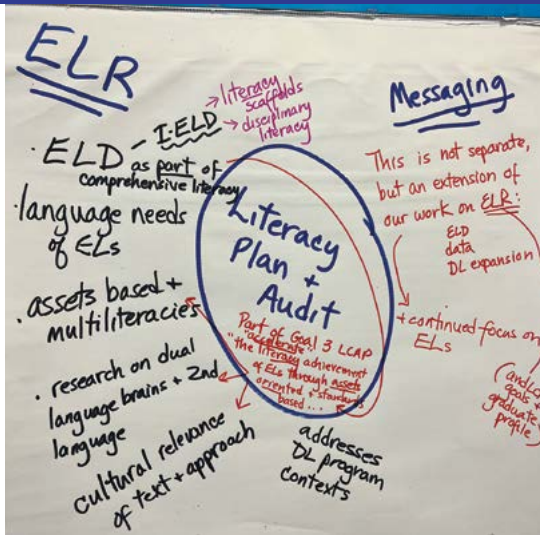 ELR
· ELD - I-ELD
→ literacy
scaffolds
→ disciplinary
literacy
as part of
comprehensive literacy
· language needs
of ELs
· assets based +
multiliteracies
· research on dual
language brains + 2nd
language
cultural relevance
of text + approach
Literacy
Plan +
Audit
Part of Goal 3 LCAP
"accelerate
the literacy achievement
of ELs through assets
oriented + standards
based...
addresses
DL program
contexts
Messaging
This is not separate,
but an extension of
our work on ELR:
ELD
data
DL expansion
+ continued focus on
ELs
goals +
graduate
profile)